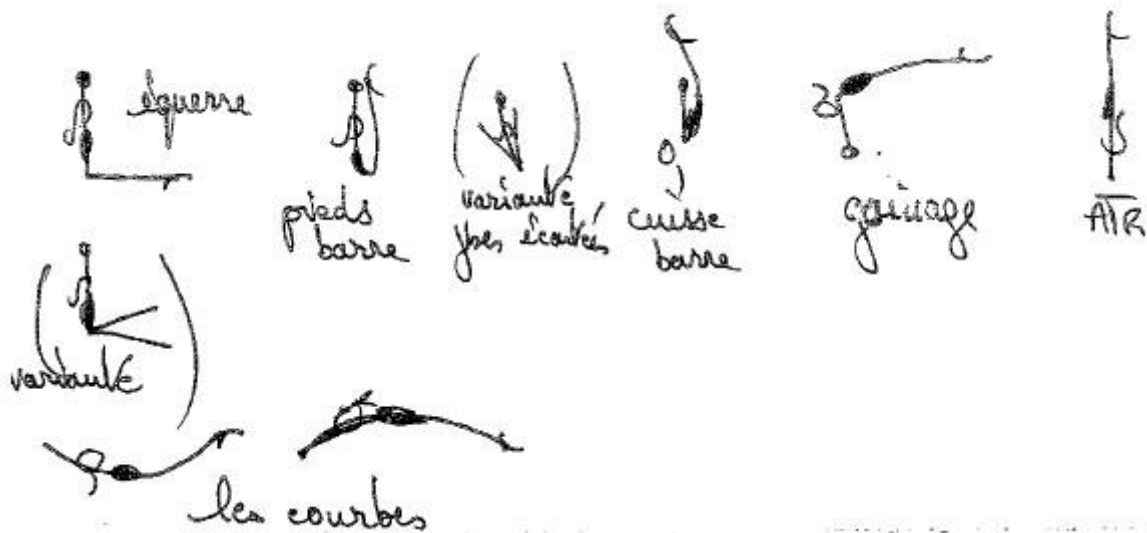 équerre
pieds
barre
variante
jbes écartées
cuisse
barre
gainage
ATR
variante
les courbes